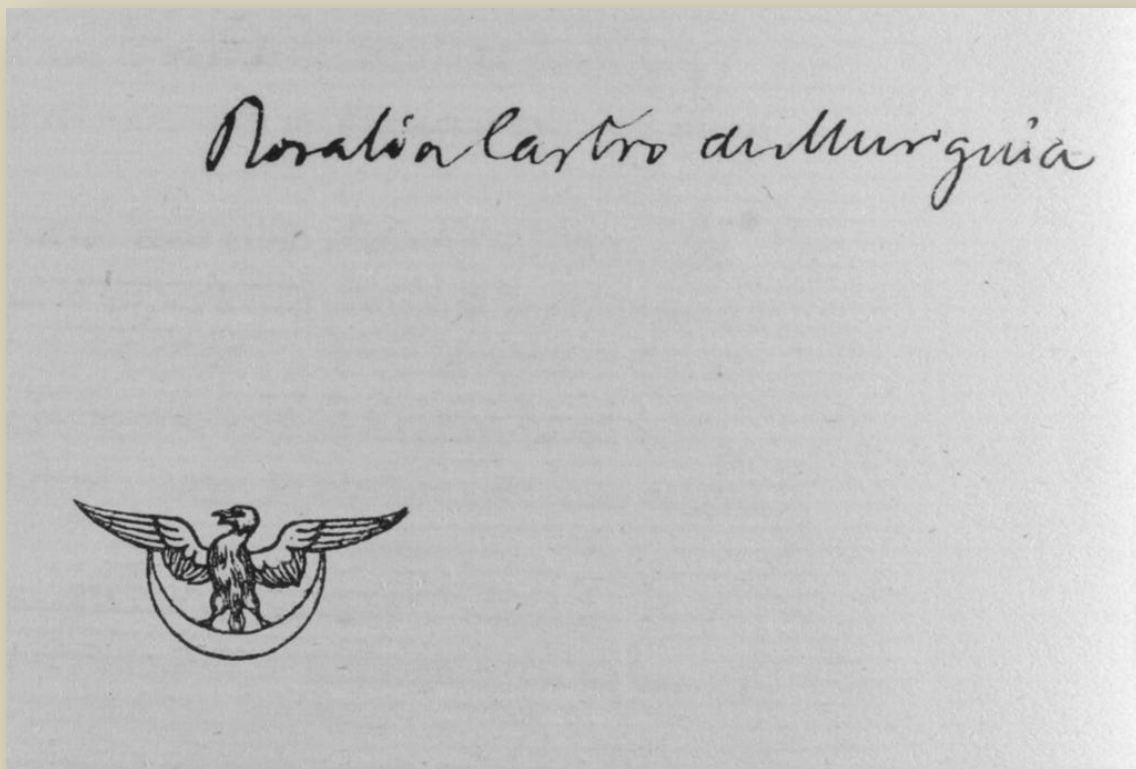 Rosalia Castro de Murguia